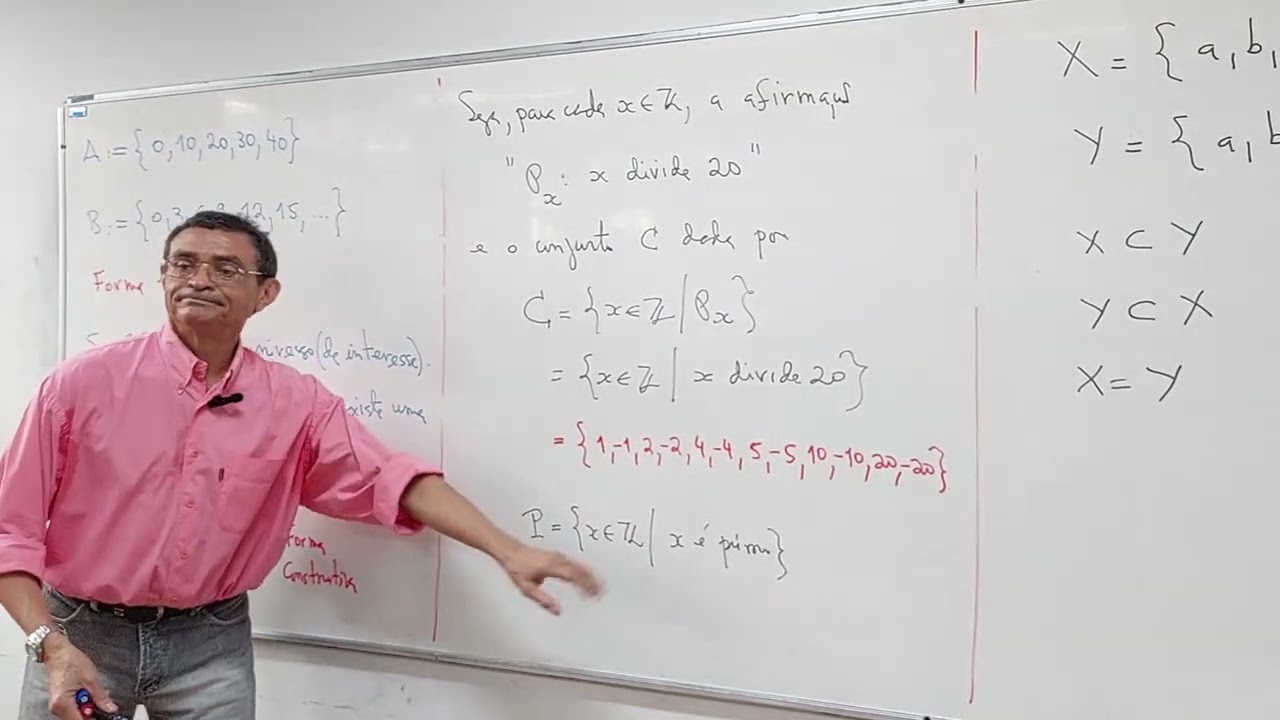 A := {0, 10, 20, 30, 40}
B := {0, 3, 12, 15, ...}
Forma
niverso (de interesse).
xiste uma
Forma
Construtiva
Seja, para cada x ∈ ℤ, a afirmação
"P_x : x divide 20"
e o conjunto C dado por
C = {x ∈ ℤ | P_x}
= {x ∈ ℤ | x divide 20}
= {1, -1, 2, -2, 4, -4, 5, -5, 10, -10, 20, -20}
P = {x ∈ ℤ | x é primo}
X = { a, b,
Y = { a, b
X ⊂ Y
Y ⊂ X
X = Y